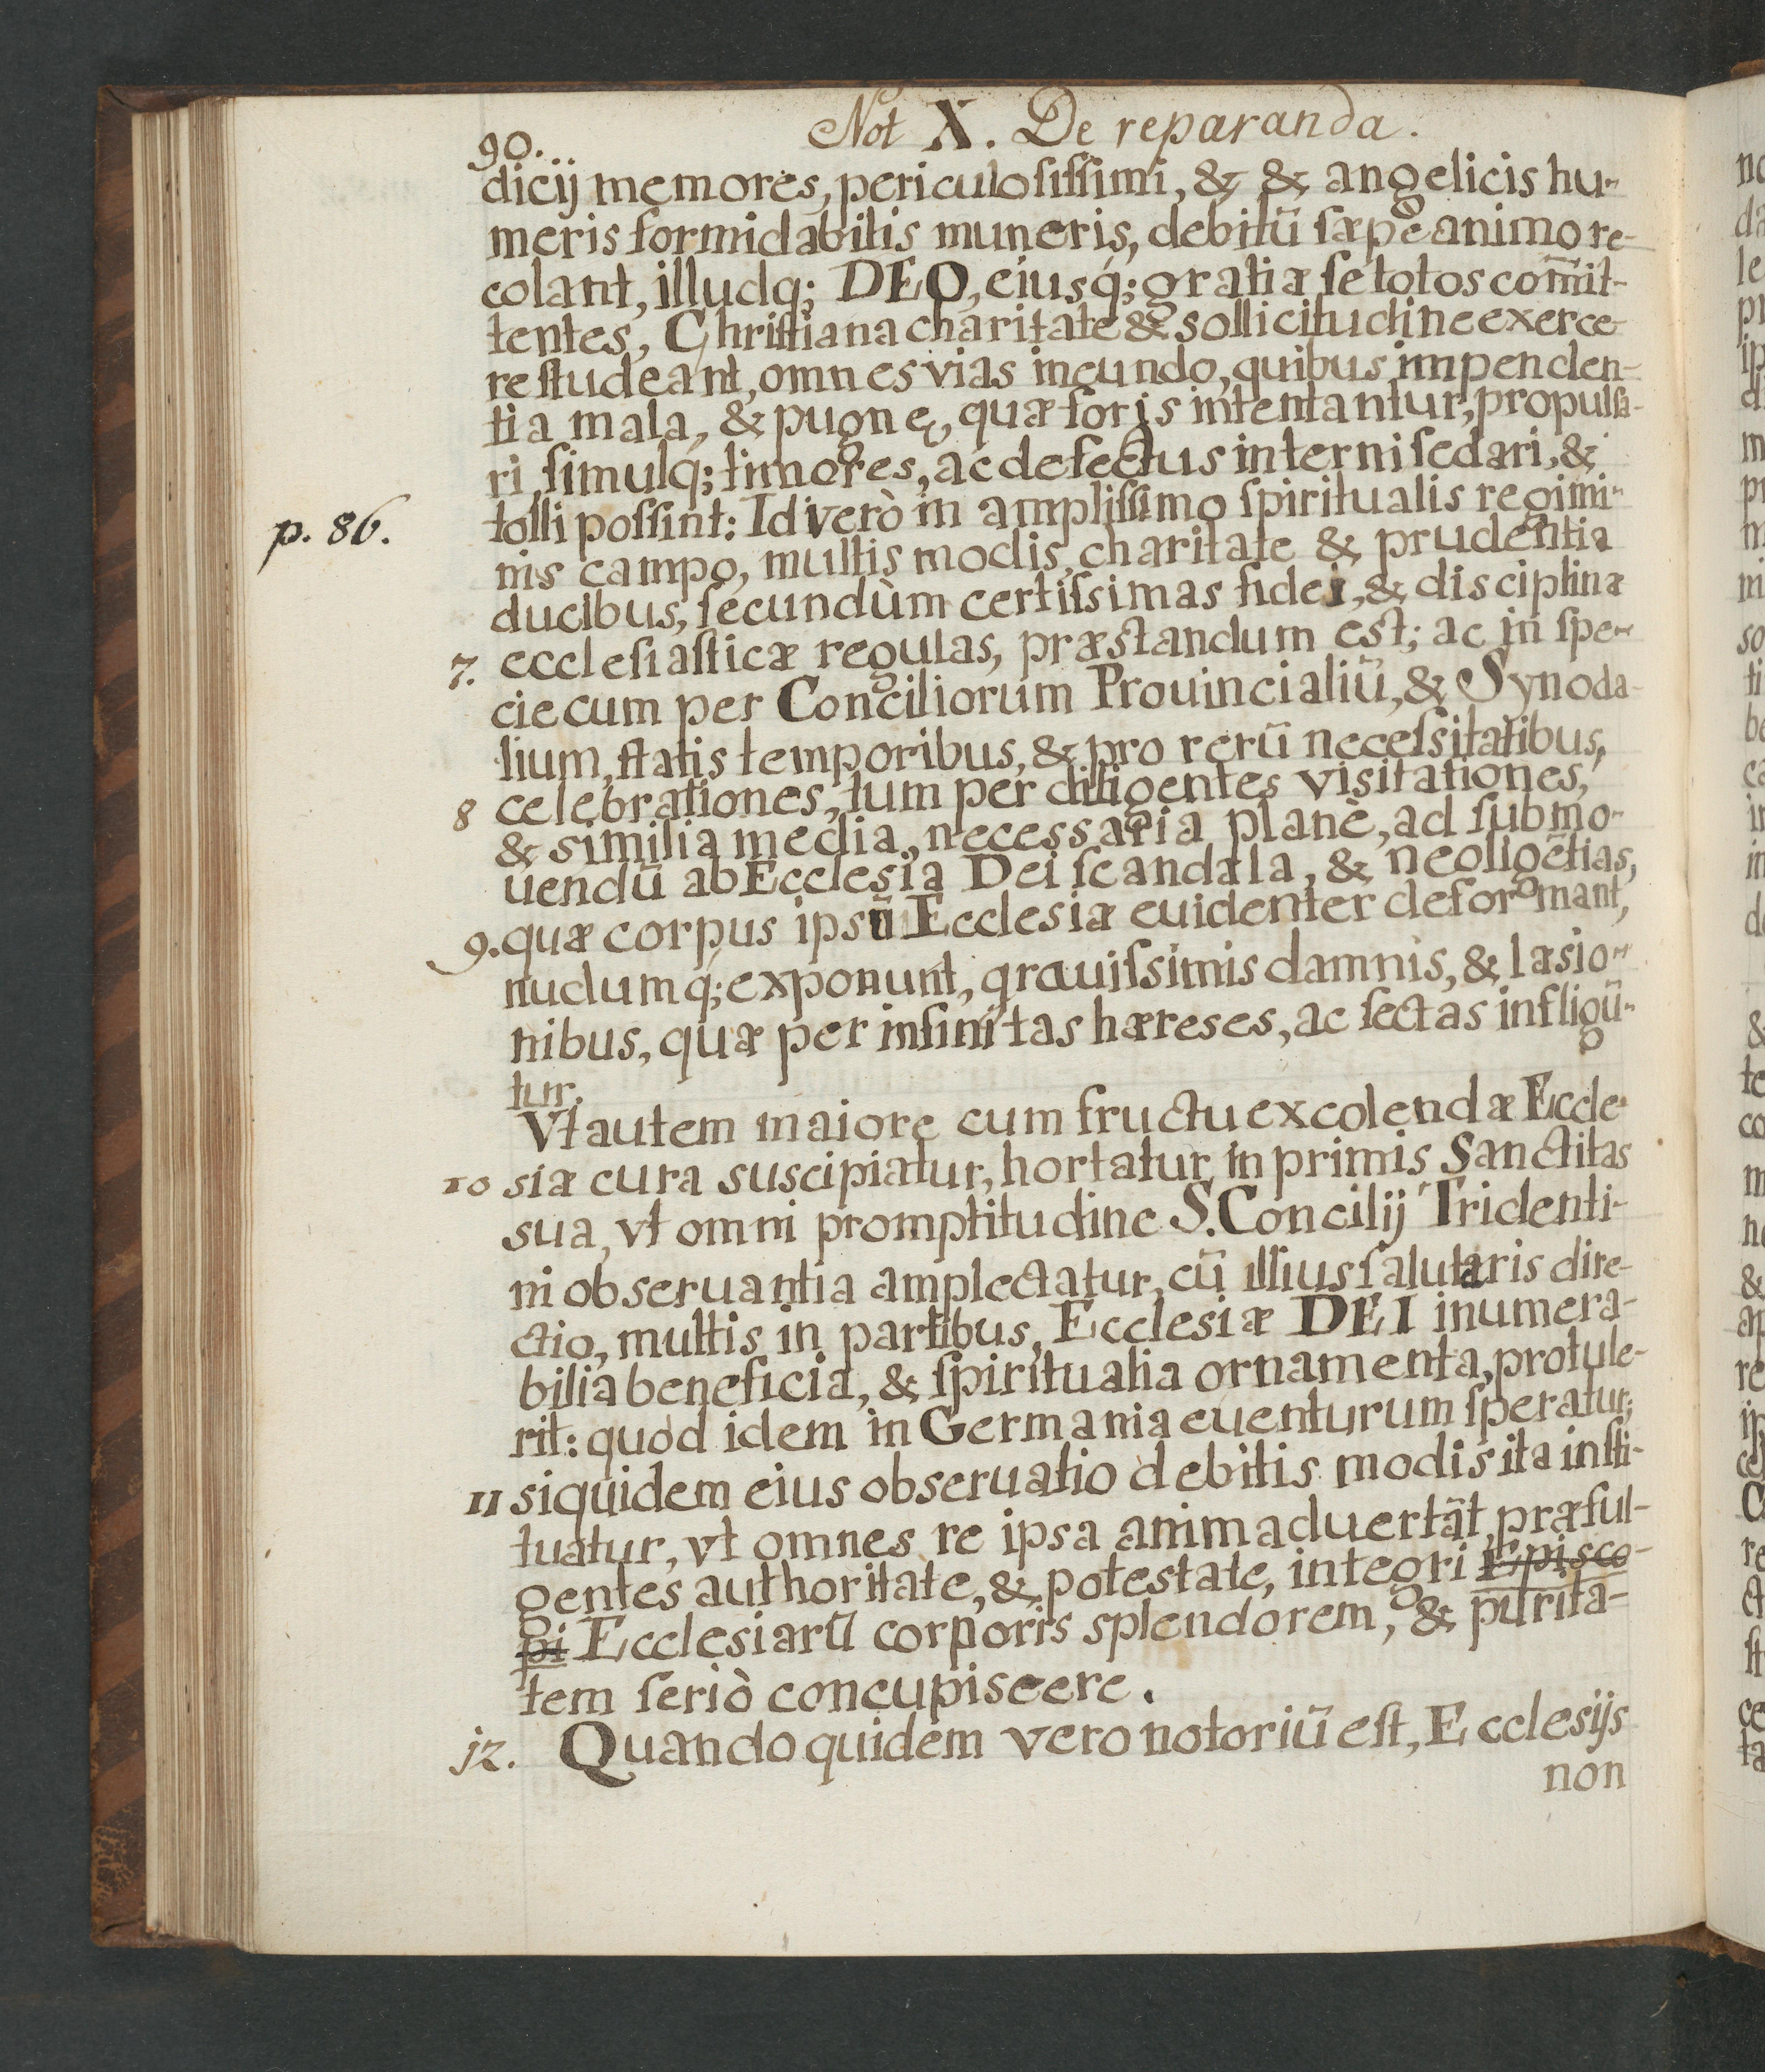 Not X. De reparanda.
90.
dicij memores, periculosiſſimi, & & angelicis hu-
meris formidabilis muneris, debitū sæpè animo re-
colant, illudq; DEO, eiusq́; gratiæ ſe totos com̄it-
tentes, Chriſtiana charitate & sollicitudine exerce-
re ſtudeant, omnes vias ineundo, quibus impenden-
tia mala, & pugnę, quæ foris intentantur, propulſa-
ri ſimulq́; timores, ac defectus interni ſedari, &
p. 86.
tolli poſſint: Id verò in ampliſſimo ſpiritualis regimi-
nis campo, multis modis, charitate & prudentia
ducibus, ſecundùm certiſsimas fidei, & disciplinæ
7. eccleſiaſticæ regulas, præstandum est; ac in ſpe-
cie cum per Conciliorum Prouincialiū, & Synoda-
lium, ſtatis temporibus, & pro rerū neceſsitatibus,
8 celebrationes, tum per diligentes visitationes,
& similia media, necessaria planè, ad ſubmo-
uendū ab Ecclesia Dei ſcandala, & negligētias,
9. quæ corpus ipsū Ecclesiæ euidenter deformant,
nudumq́; exponunt, grauiſsimis damnis, & læsio-
nibus, quæ per infinitas hæreses, ac ſectas infligū-
tur.
Vt autem maiore cum fructu excolendæ Eccle-
10 siæ cura suscipiatur, hortatur in primis Sanctitas
sua, vt omni promptitudine S. Concilij Tridenti-
ni obseruantia amplectatur, cū illius ſalutaris dire-
ctio, multis in partibus, Ecclesiæ DEI inumera-
bilia beneficia, & ſpiritualia ornamenta, protule-
rit: quod idem in Germania euenturum ſperatur;
11 siquidem eius obseruatio debitis modis ita inſti-
tuatur, vt omnes re ipsa animaduertāt, præful-
gentes authoritate, & potestate, integri Episco-
pi Ecclesiarū corporis splendorem, & purita-
tem ſeriò concupiscere.
12. Quandoquidem vero notoriū eſt, Ecclesijs
non